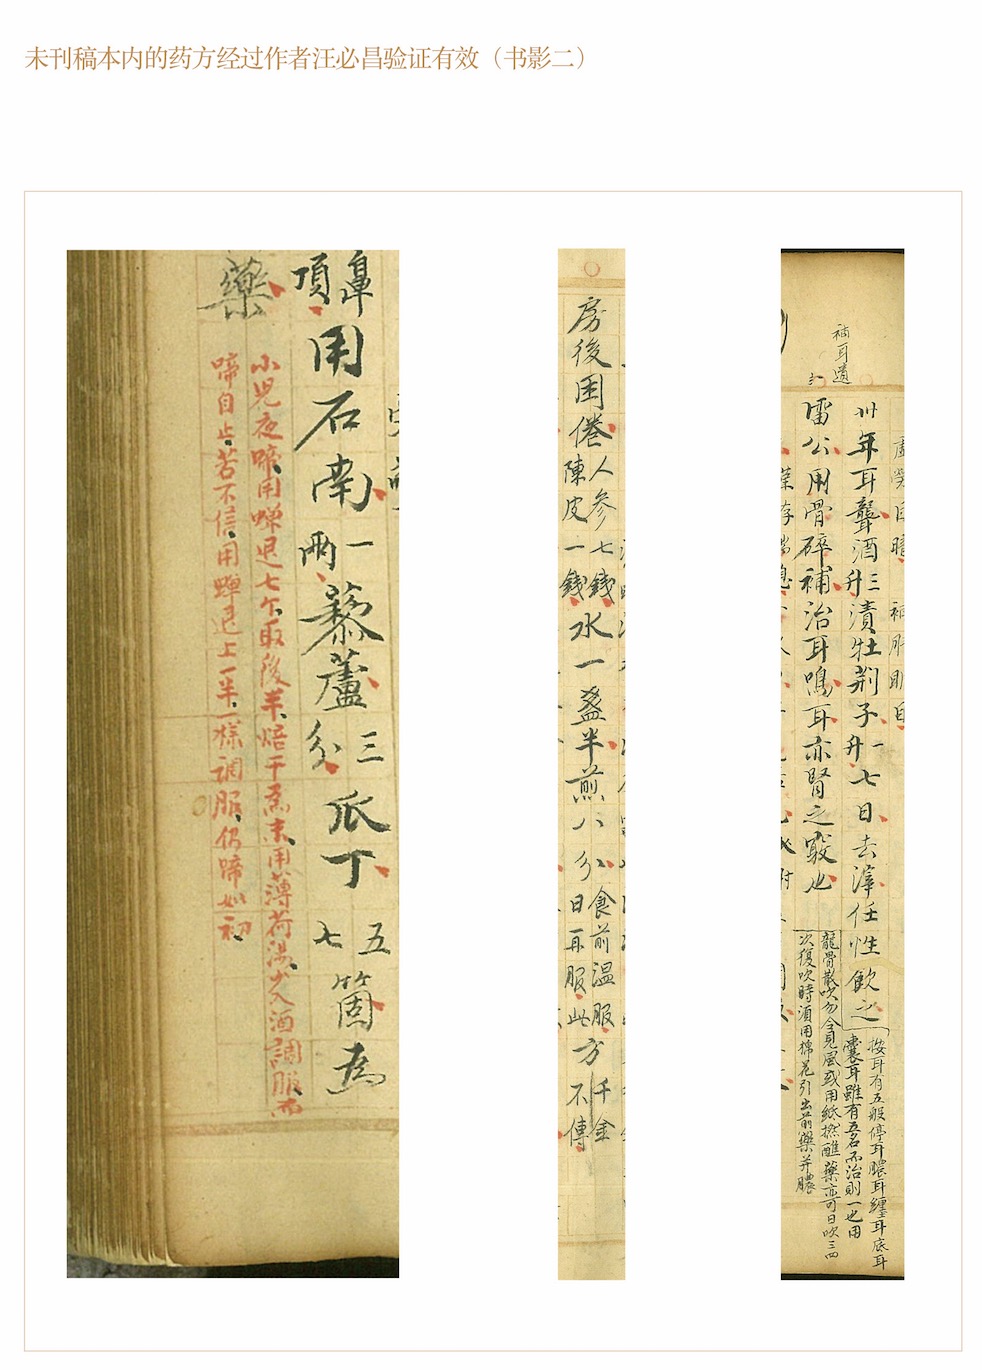 未刊稿本内的药方经过作者汪必昌验证有效（书影二）
鼻
項
用石南一兩藜蘆三分瓜丁五七箇為
藥
小児夜啼用蟬退七个取後半焙干為末用薄荷湯少入酒調服而
啼自止若不信用蟬退上一半一樣調服仍啼如初
房後困倦人參七錢陳皮一錢水一盞半煎八分食前温服日再服此方千金不傳
補耳道
虛勞目暗
補肝明目
卅年耳聾酒三升漬牡荆子一升七日去滓任性飲之
按耳有五般停耳膿耳纏耳底耳
囊耳雖有五名而治則一也用
雷公用骨碎補治耳鳴耳亦腎之竅也
龍骨散吹勿令見風或用紙撚蘸藥亦可日吹三四
次復吹時須用棉花引出前藥并膿